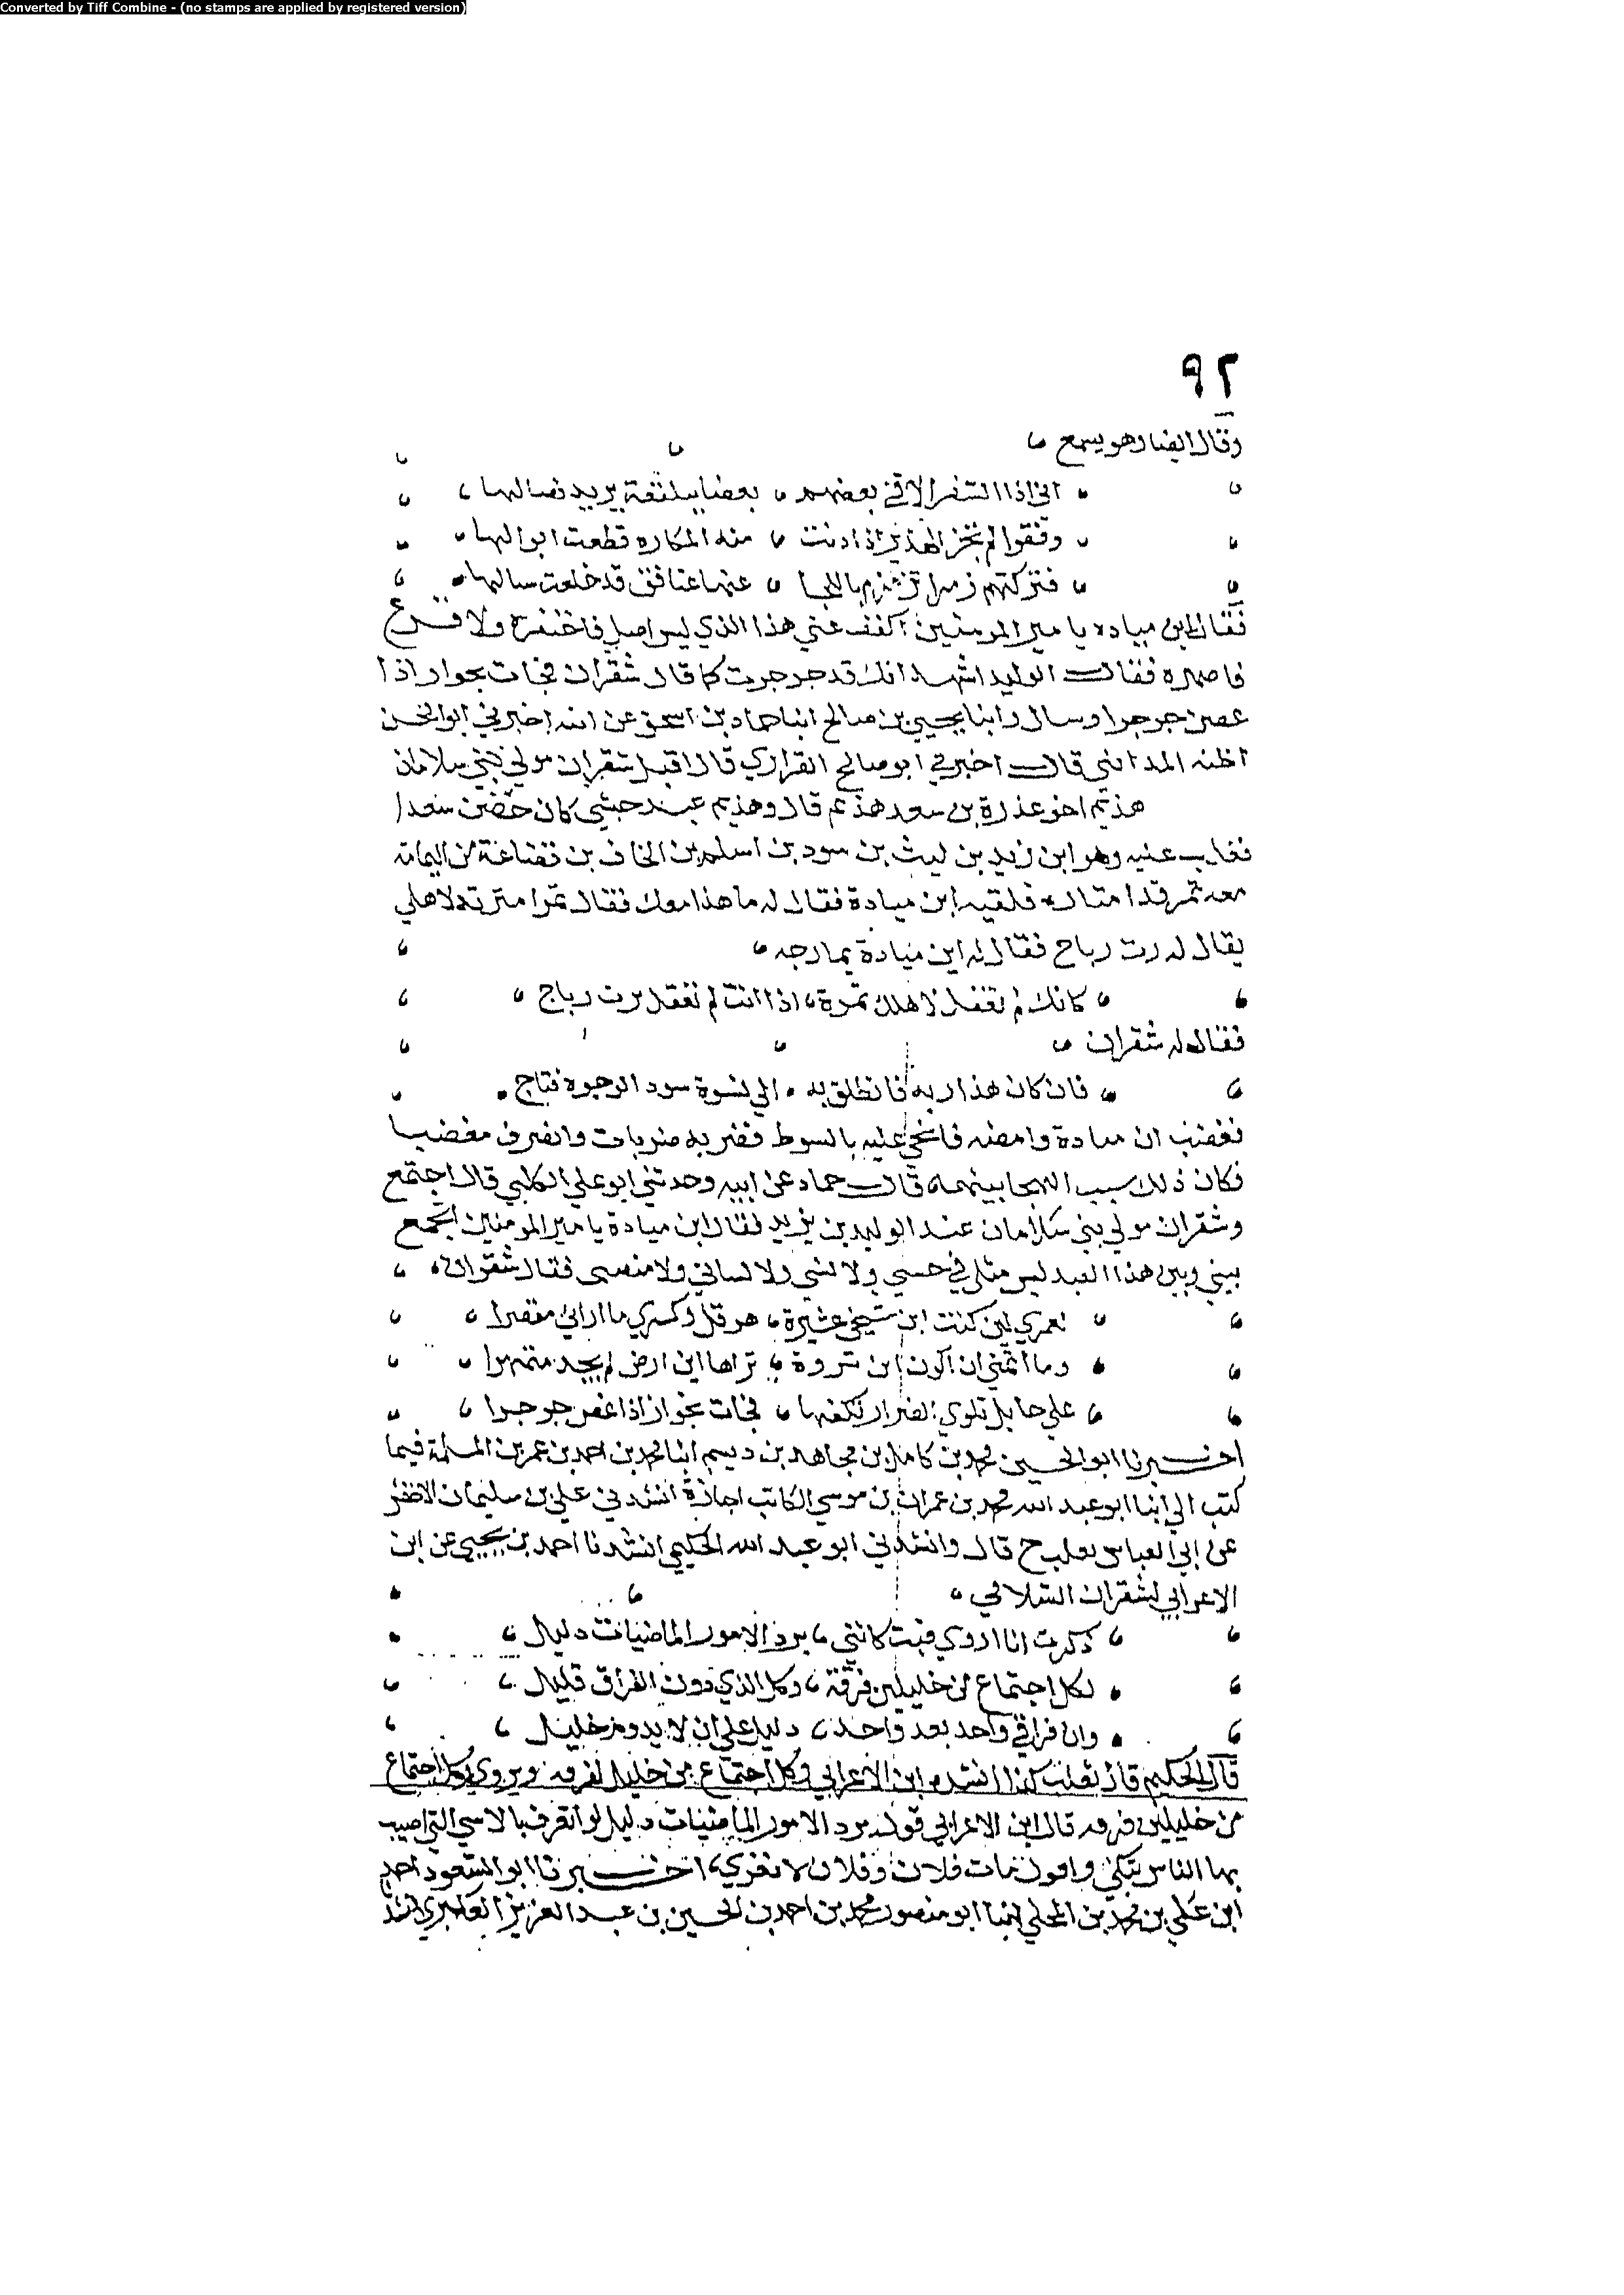 Converted by Tiff Combine - (no stamps are applied by registered version)
٩٢
وقال ايضا وهو يسمع
اني اذا الشعرا لاقي بعضهم بعضا ببلقعة يريد نضالها
وقفوا لم تجز الهدير اذا دنت منه المكاره قطعت ابوالها
فتركتهم زمرا ترمز باللحا عنها عنافق قد خلعت سبالها
فقال ابن مياده يا مير المومنين اكفف عني هذا الذي ليس اصل فاحتفره ولا فرع
فاصهره فقال الوليد اشهد انك قد جرجرت كما قال شقران فجات بجوار اذا
عصن جرجرا وسال رابنا يحيي بن صالح ابنا حماد بن اسحق عن ابيه اخبرني ابو الحسن
اظنه المدائني قال اخبرني ابو صالح الفزاري قال اقبل شقران مولي بني سلامان
هذيم اخو عذرة بن سعد هذيم قال وهذيم عبد حبشي كان حضن سعدا
فغلب عليه وهو ابن زيد بن ليث بن سود بن اسلم بن الحاف بن قضاعة من اليمامة
معه تمر قد امتاره فلقيه ابن ميادة فقال له ما هذا معك فقال تمرا مترته لاهلي
يقال له زب رباح فقال له ابن ميادة يمازحه
كانك لم تقفل لاهلك تمرة اذا انت لم تقفل بزب رباح
فقال له شقران
فان كان هذا زبه فانطلق به الي نسوة سود الوجوه قباح
فغضب ابن ميادة وامضه فانحي عليه بالسوط فضربه ضربات وانصرف مغضبا
فكان ذلك سبب الهجا بينهما قال حماد عن ابيه وحدثني ابو علي الكلبي قال اجتمع
وشقران مولي بني سلامان عند الوليد بن يزيد فقال ابن ميادة يا مير المومنين اتجمع
بيني وبين هذا العبد ليس مثلي في حسبي ولا نسبي ولا لساني ولا منصبي فقال شقران
لعمري لين كنت ابن شيخي عشيرة هرقل وكسري ما اراني مقصرا
وما اتمني ان اكون ابن نزوة نزاها ابن ارض لم يجد متمهرا
علي حايل تلوي الصرار بكفها فجات بخوار اذا عض جرجرا
اخبرنا ابو الحسين محمد بن كامل بن مجاهد بن ديسم ابنا محمد بن احمد بن عمر بن المسلمة فيما
كتب الي ابنا ابو عبد الله محمد بن عمران بن موسي الكاتب اجازة انشدني علي بن سليمان الاخفش
عن ابي العباس ثعلب ح قال وانشدني ابو عبد الله الحكيمي انشدنا احمد بن يحيي عن ابن
الاعرابي لشقران السلامي
ذكرت ابا اروي فبت كانني برد الامور الماضيات دليل
لكل اجتماع من خليلين فرقة وكل الذي دون الفراق قليل
وان فراقي واحد بعد واحد دليل علي ان لا يدوم خليل
قال الحكيمي قال ثعلب كذا انشده ابن الاعرابي وكل اجتماع من خليل لفرقه ويروي لكل اجتماع
من خليلين فرقه قال ابن الاعرابي قوله برد الامور الماضيات دليل لو اتعرف بالاسي التي اصيب
بها الناس تبكي واقول مات فلان وفلان لاتعزي اخبرنا ابو السعود احمد
ابن علي بن محمد بن المجلي ابنا ابو منصور محمد بن احمد بن الحسين بن عبد العزيز العكبري